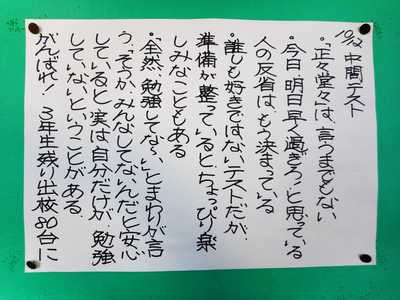 10/12 中間テスト
・「正々堂々」は、言うまでもない
・今日、明日早く過ぎろ、と思っている
人の反省は、もう決まっている
・誰しも好きではないテストだが、
準備が整っていると、ちょっぴり楽
しみなこともある
・「全然、勉強してない」とまわりが言
う。「そうか、みんなしてないんだ」と安心
していると、実は自分だけが、勉強
していない、ということがある
がんばれ! 3年生残り出校80台に